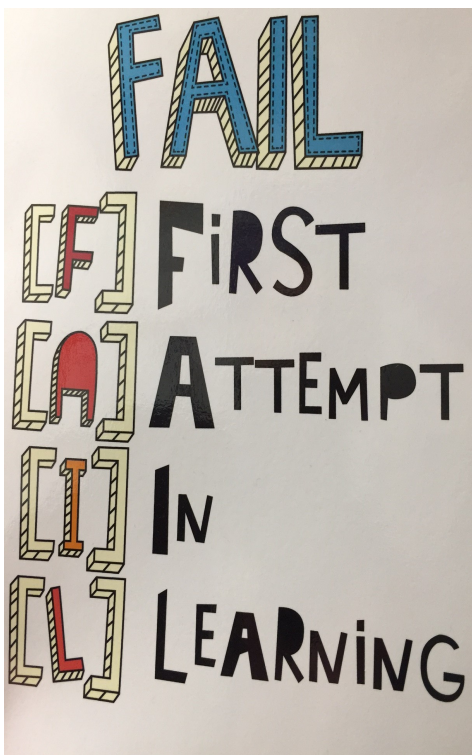 FAIL
[F] FiRST
[A] ATTEMPT
[I] IN
[L] LEARNiNG